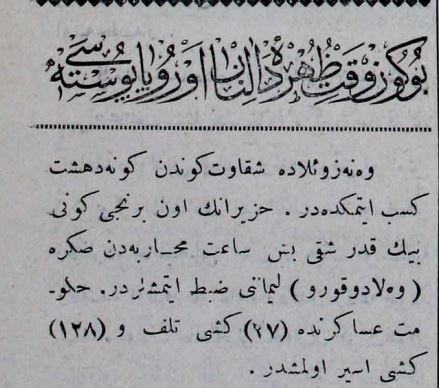 بوكون وقت ظهرده النان اوروپا پوسته سی
وەنەزوئلاده شقاوت كوندن كونه دهشت
كسب ایتمكده‌در . حزیرانك اون برنجی كونی
بیك قدر شقی بش ساعت محاربه‌دن صكره
( وەلادوقورو ) لیماننی ضبط ایتمشلردر. حكو-
مت عساكرنده (٢٧) كشی تلف و (١٢٨)
كشی اسیر اولمشدر .